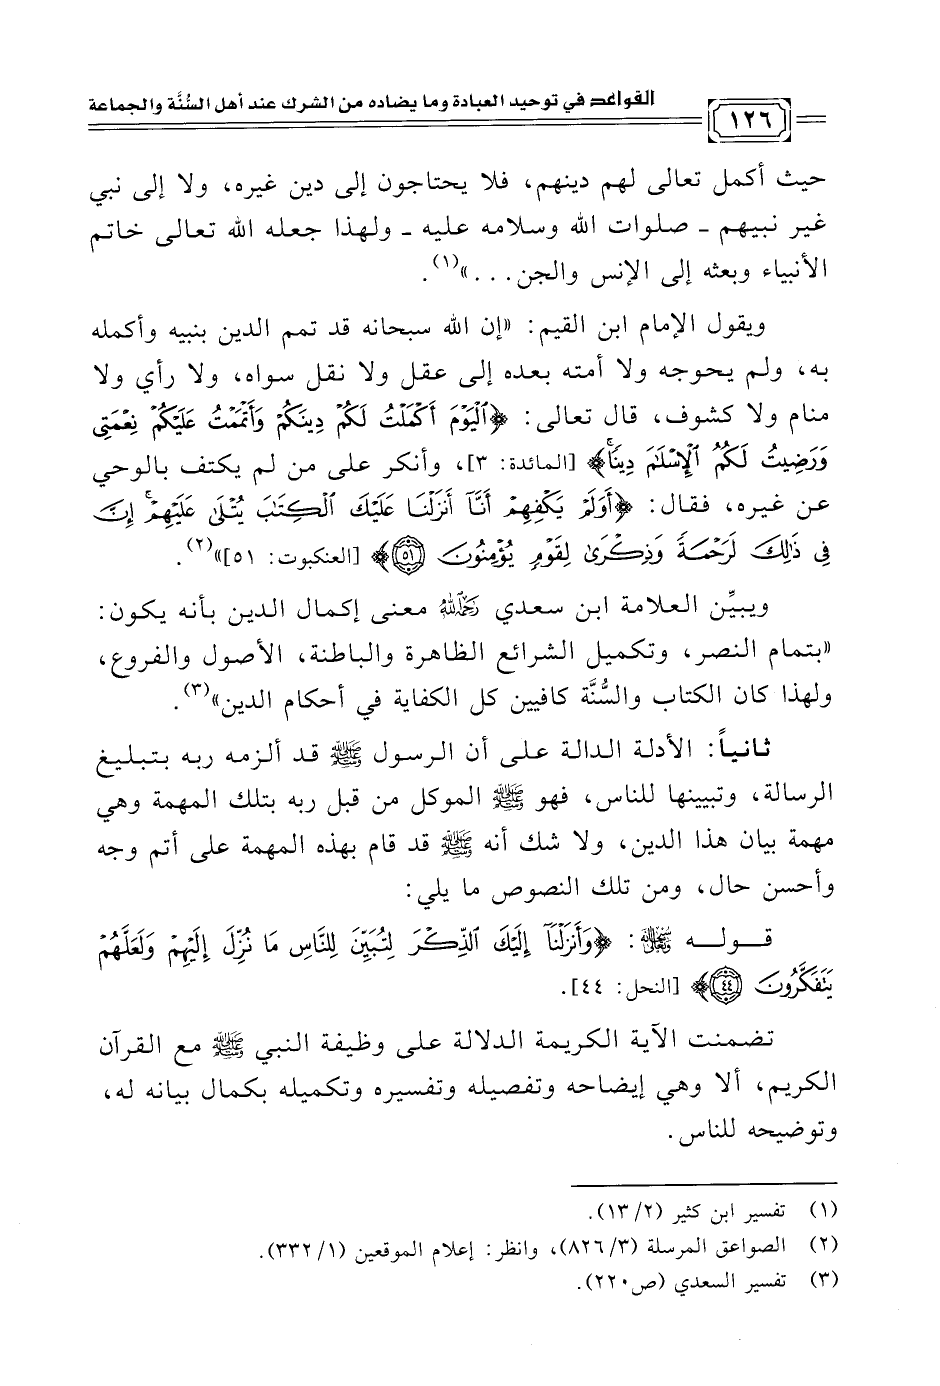 القواعد في توحيد العبادة وما يضاده من الشرك عند أهل السُّنَّة والجماعة
١٢٦
حيث أكمل تعالى لهم دينهم، فلا يحتاجون إلى دين غيره، ولا إلى نبي
غير نبيهم ـ صلوات الله وسلامه عليه ـ ولهذا جعله الله تعالى خاتم
الأنبياء وبعثه إلى الإنس والجن...»(١).
ويقول الإمام ابن القيم: «إن الله سبحانه قد تمم الدين بنبيه وأكمله
به، ولم يحوجه ولا أمته بعده إلى عقل ولا نقل سواه، ولا رأي ولا
منام ولا كشوف، قال تعالى: ﴿ٱلْيَوْمَ أَكْمَلْتُ لَكُمْ دِينَكُمْ وَأَتْمَمْتُ عَلَيْكُمْ نِعْمَتِى
وَرَضِيتُ لَكُمُ ٱلْإِسْلَٰمَ دِينًاۚ﴾ [المائدة: ٣]، وأنكر على من لم يكتف بالوحي
عن غيره، فقال: ﴿أَوَلَمْ يَكْفِهِمْ أَنَّآ أَنزَلْنَا عَلَيْكَ ٱلْكِتَٰبَ يُتْلَىٰ عَلَيْهِمْۚ إِنَّ
فِى ذَٰلِكَ لَرَحْمَةً وَذِكْرَىٰ لِقَوْمٍ يُؤْمِنُونَ ۝٥١﴾ [العنكبوت: ٥١]»(٢).
ويبيِّن العلامة ابن سعدي رَحِمَهُ اللهُ معنى إكمال الدين بأنه يكون:
«بتمام النصر، وتكميل الشرائع الظاهرة والباطنة، الأصول والفروع،
ولهذا كان الكتاب والسُّنَّة كافيين كل الكفاية في أحكام الدين»(٣).
ثانياً: الأدلة الدالة على أن الرسول ﷺ قد ألزمه ربه بتبليغ
الرسالة، وتبيينها للناس، فهو ﷺ الموكل من قبل ربه بتلك المهمة وهي
مهمة بيان هذا الدين، ولا شك أنه ﷺ قد قام بهذه المهمة على أتم وجه
وأحسن حال، ومن تلك النصوص ما يلي:
قوله ﷾: ﴿وَأَنزَلْنَآ إِلَيْكَ ٱلذِّكْرَ لِتُبَيِّنَ لِلنَّاسِ مَا نُزِّلَ إِلَيْهِمْ وَلَعَلَّهُمْ
يَتَفَكَّرُونَ ۝٤٤﴾ [النحل: ٤٤].
تضمنت الآية الكريمة الدلالة على وظيفة النبي ﷺ مع القرآن
الكريم، ألا وهي إيضاحه وتفصيله وتفسيره وتكميله بكمال بيانه له،
وتوضيحه للناس.
(١) تفسير ابن كثير (١٣/٢).
(٢) الصواعق المرسلة (٨٢٦/٣)، وانظر: إعلام الموقعين (٣٣٢/١).
(٣) تفسير السعدي (ص٢٢٠).